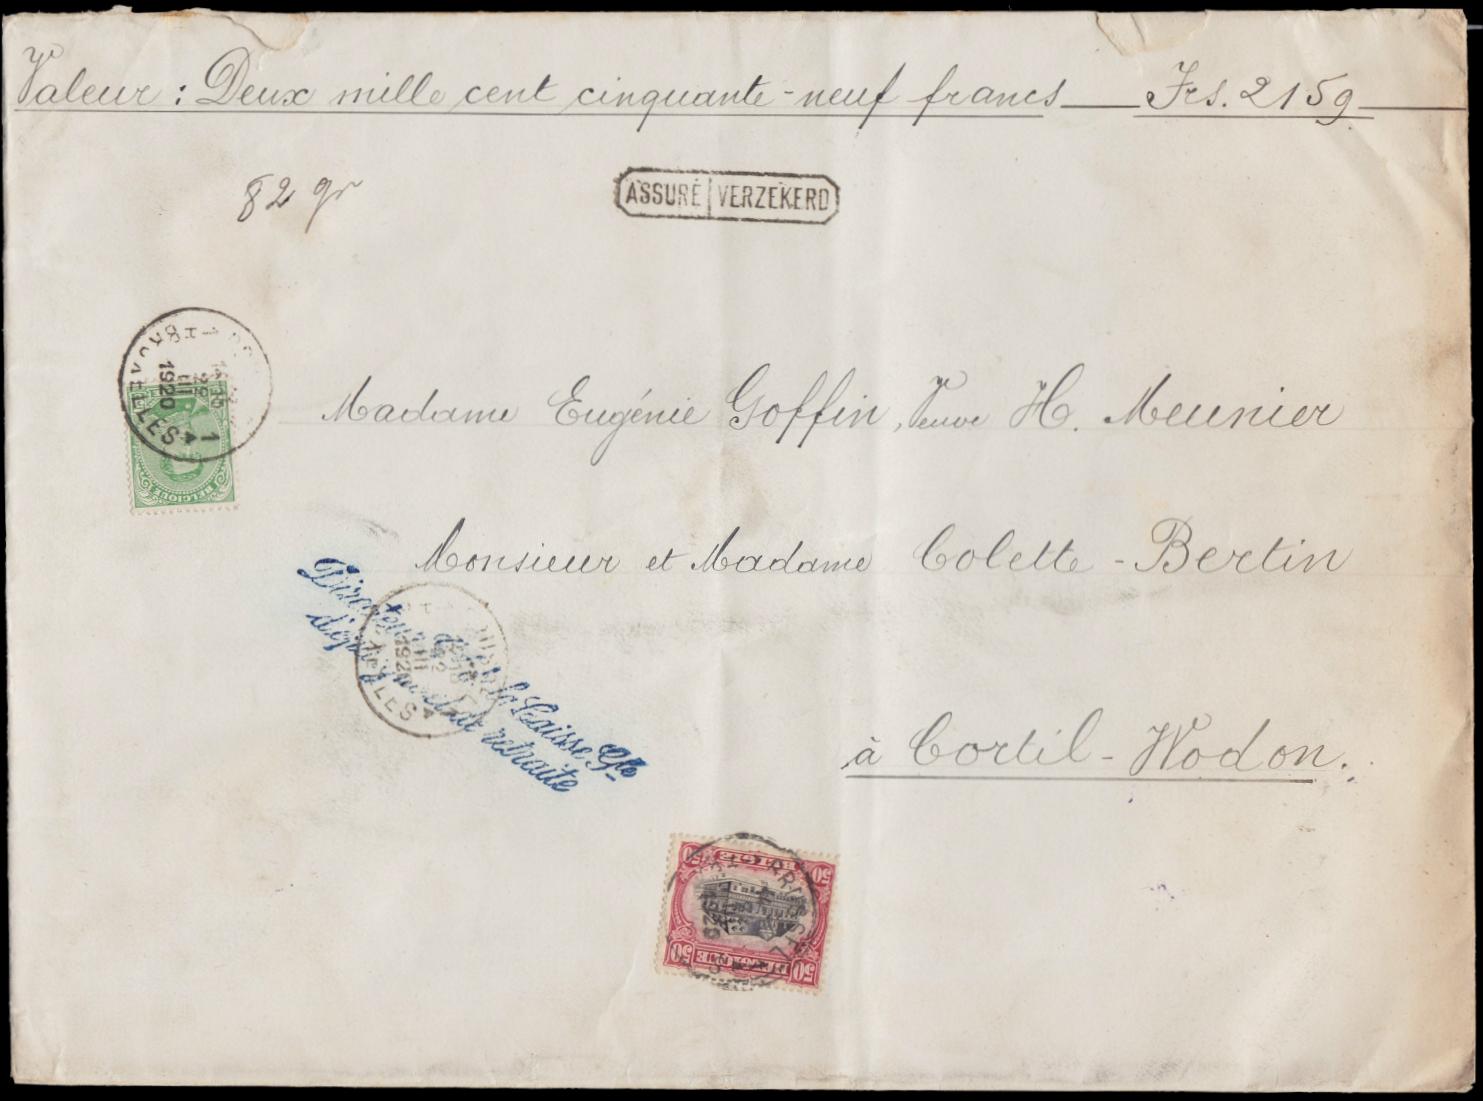 Valeur : Deux mille cent cinquante-neuf francs Frs. 2159
82 gr
ASSURÉ VERZEKERD
Madame Eugénie Goffin, Veuve H. Meunier
Monsieur et Madame Colette-Bertin
à Cortil-Wodon.
1920
BELGIQUE
Directeur de la Caisse Gle
d'épargne et de retraite
50 BELGIË 50
50 BELGIQUE 50